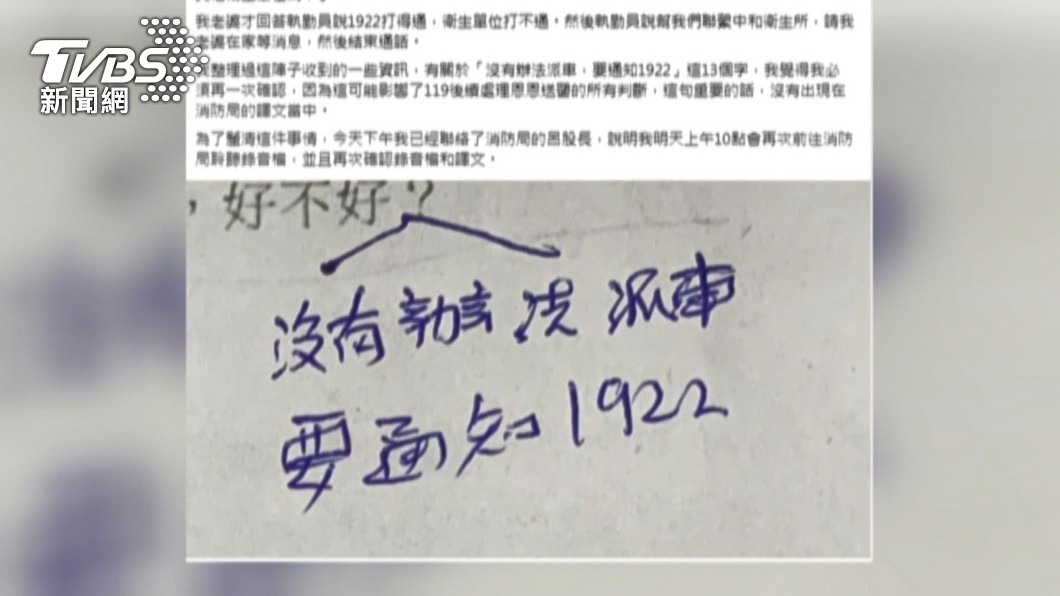 我老婆才回答執勤員說1922打得通，衛生單位打不通。然後執勤員說幫我們聯繫中和衛生所，請我
老婆在家等消息，然後結束通話。
我整理過這陣子收到的一些資訊，有關於「沒有辦法派車，要通知1922」這13個字，我覺得我必
須再一次確認，因為這可能影響了119後續處理恩恩送醫的所有判斷，這句重要的話，沒有出現在
消防局的譯文當中。
為了釐清這件事情，今天下午我已經聯絡了消防局的呂股長，說明我明天上午10點會再次前往消防
局聆聽錄音檔，並且再次確認錄音檔和譯文。
TVBS
新聞網
，好不好？
沒有辦法派車
要通知1922